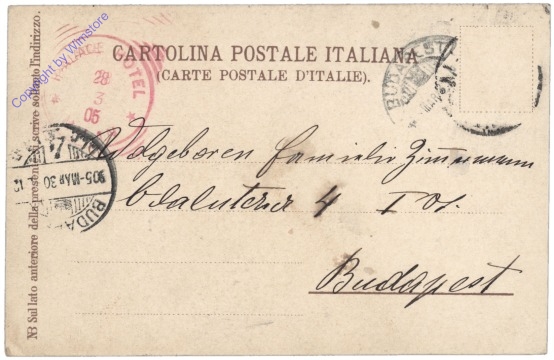 CARTOLINA POSTALE ITALIANA
(CARTE POSTALE D'ITALIE).
HOTEL
28
3
05
Copyright by Wimstore
BUDAPEST
905 MAR 30
BUDA
NB Sul lato anteriore della presente si scrive soltanto l'indirizzo.
Wolgeboren Familie Zimmermann
4 I
Budapest